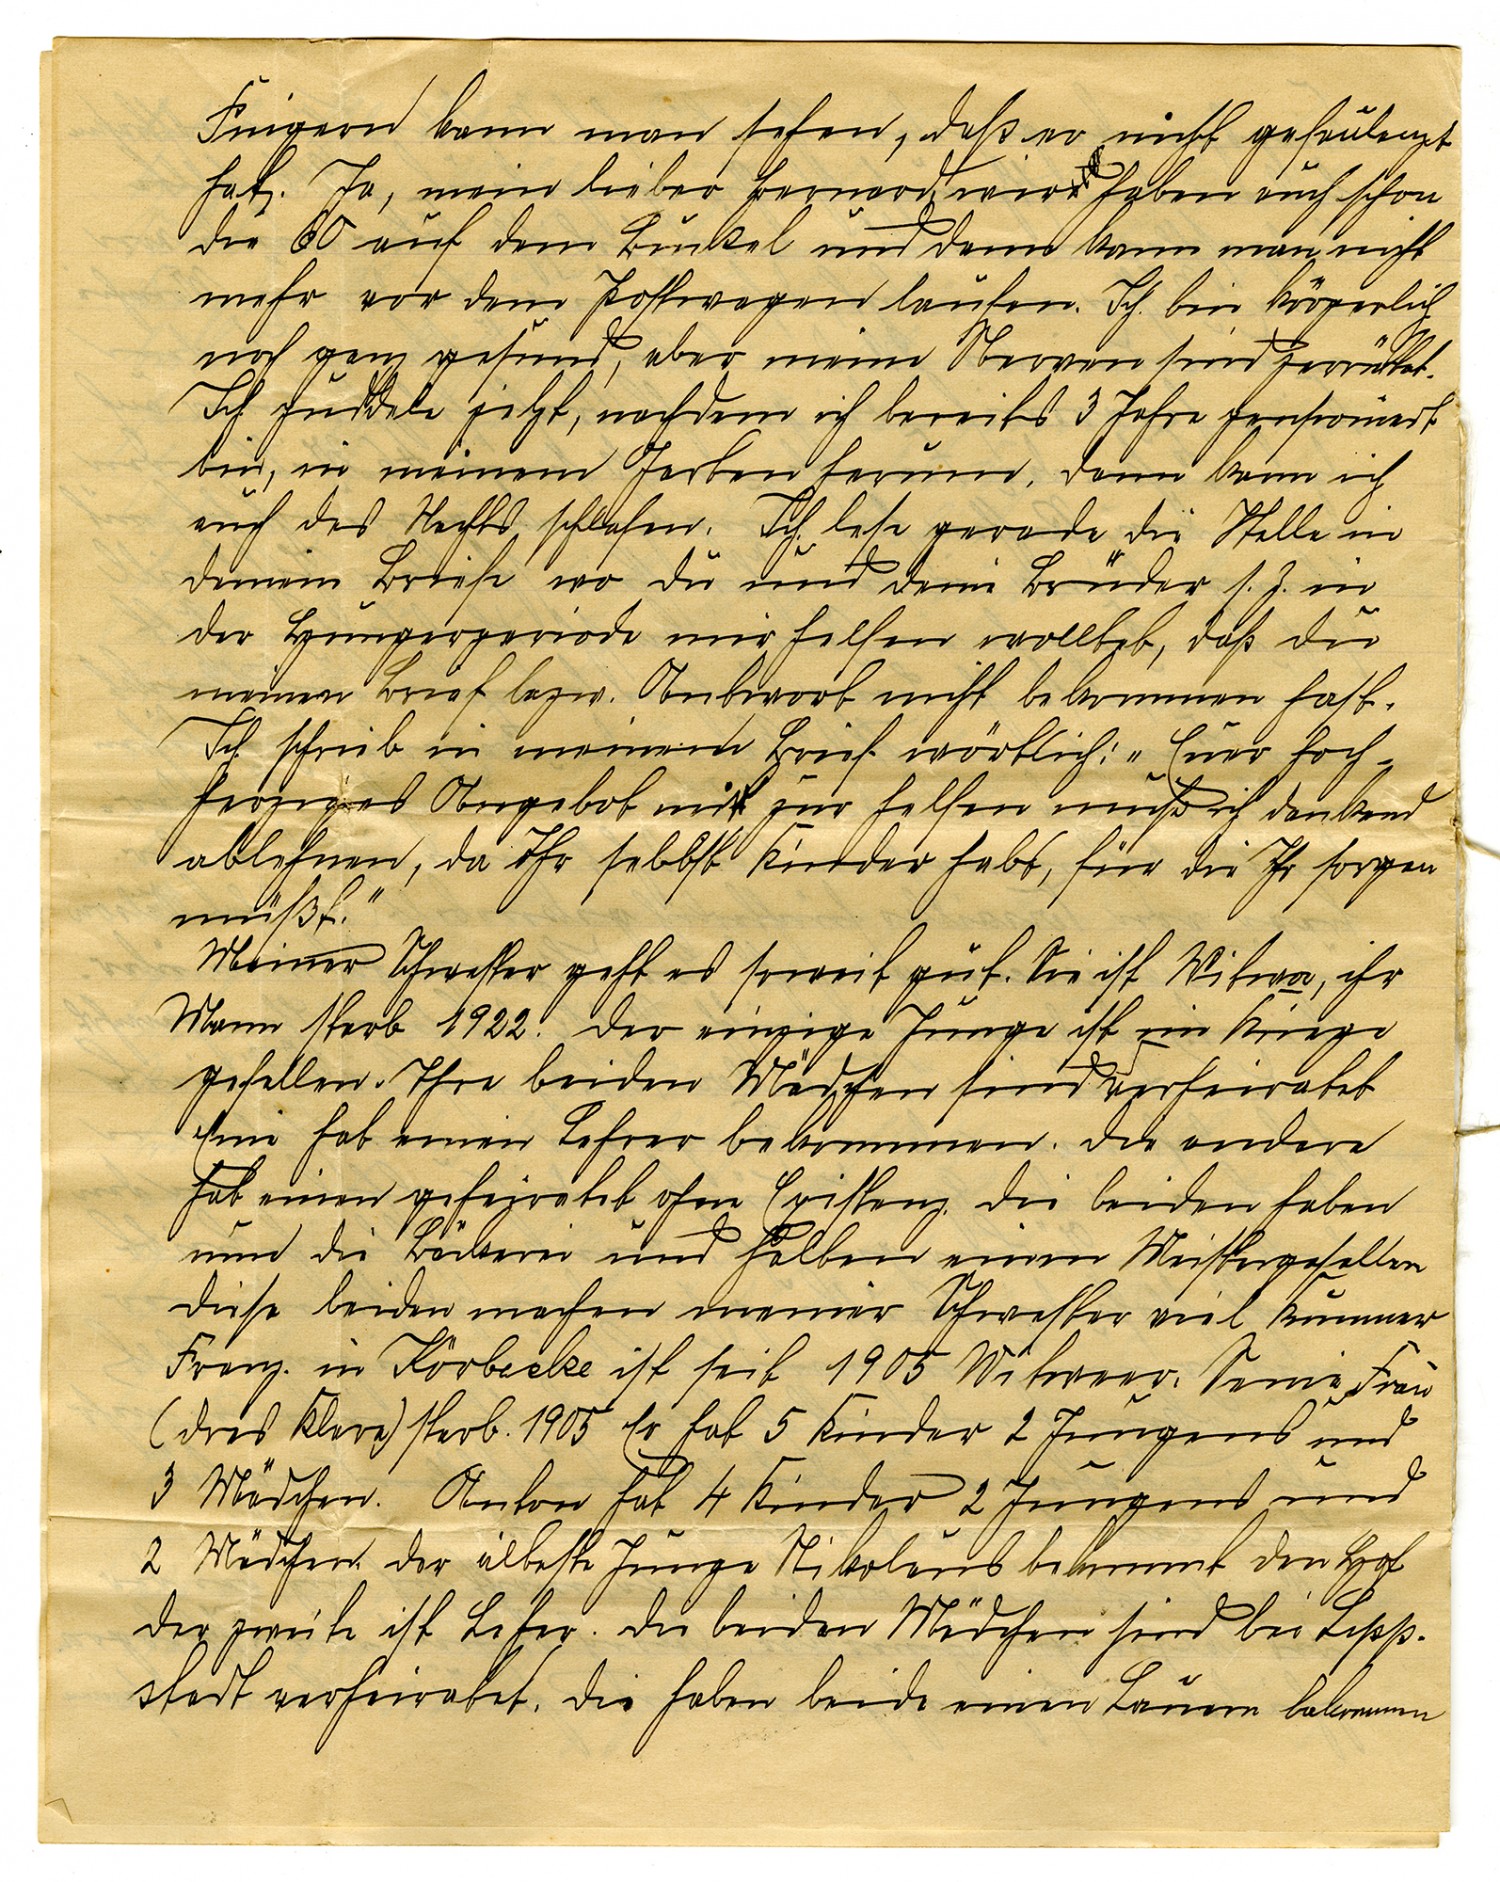 Fingern kann man sehen, daß er nicht gefaulenzt
hat. Ja, mein lieber Bernard, wir haben auch schon
die 60 auf dem Buckel und dann kann man nicht
mehr vor dem Postwagen laufen. Ich bin körperlich
noch ganz gesund, aber meine Nerven sind zerrüttet.
Ich puddele jetzt, nachdem ich bereits 3 Jahre pensioniert
bin, in meinem Garten herum, dann kann ich
auch des Nachts schlafen. Ich lese gerade die Stelle in
deinem Briefe wo du und deine Brüder s. Z. in
der Hungerperiode mir helfen wolltet, daß du
meinen Brief bezw. Antwort nicht bekommen hast.
Ich schrieb in meinem Brief wörtlich: „Euer hoch-
herziges Angebot mir zur helfen muß ich dankend
ablehnen, da Ihr selbst Kinder habt, für die Ihr sorgen
müßt.“
Meiner Schwester geht es soweit gut. Sie ist Witwe, ihr
Mann starb 1922. Der einzige Junge ist im Kriege
gefallen. Ihre beiden Mädchen sind verheiratet
Eine hat einen Lehrer bekommen. Die andere
hat einen geheiratet ohne Existenz. Die beiden haben
nun die Bäckerei und halten einen Meistergesellen
Diese beiden machen meiner Schwester viel Kummer
Franz. in Körbecke ist seit 1905 Witwer. Seine Frau
(dres Klara) starb. 1905 Er hat 5 Kinder 2 Jungens und
3 Mädchen. Anton hat 4 Kinder 2 Jungens und
2 Mädchen. Der älteste Junge Nikolaus bekommt den Hof
der zweite ist Lehrer. Die beiden Mädchen sind bei Lipp-
stadt verheiratet. Die haben beide einen Bauern bekommen